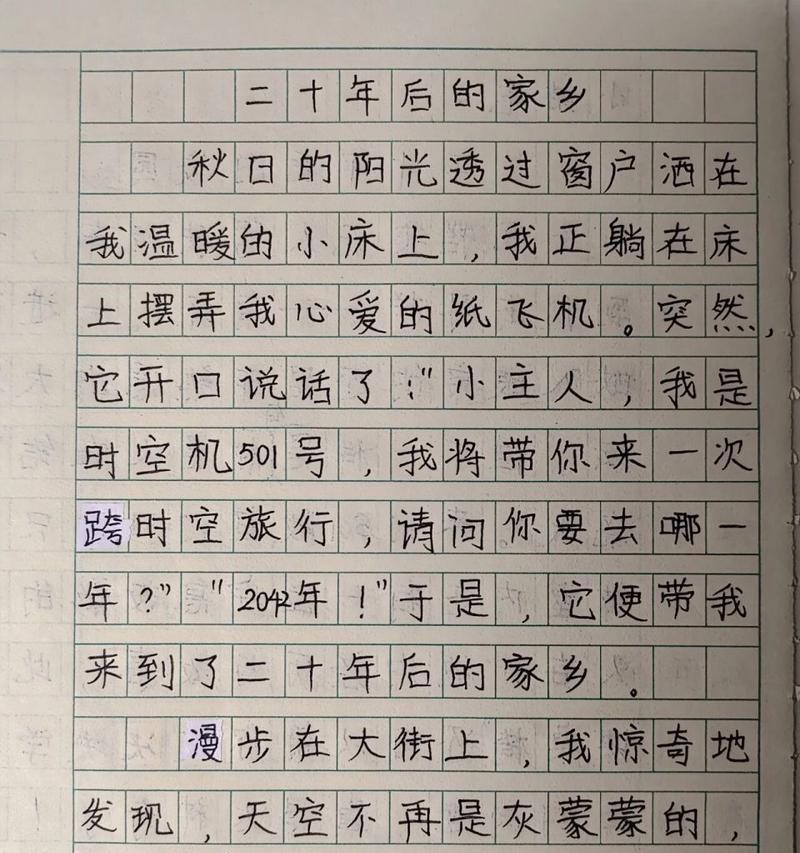 二十年后的家乡
秋日的阳光透过窗户洒在
我温暖的小床上，我正躺在床
上摆弄我心爱的纸飞机。突然，
它开口说话了："小主人，我是
时空机501号，我将带你来一次
跨时空旅行，请问你要去哪一
年？""2042年！"于是，它便带我
来到了二十年后的家乡。
漫步在大街上，我惊奇地
发现，天空不再是灰蒙蒙的，